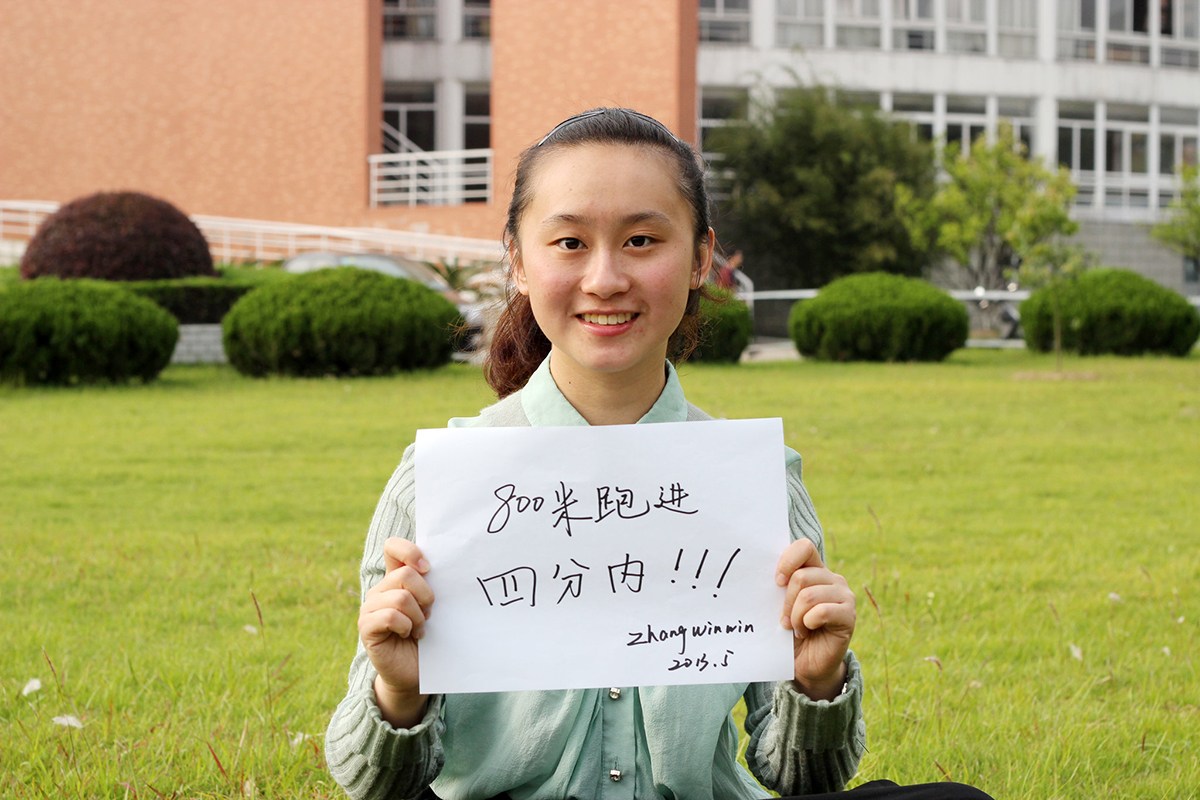 800米跑进
四分内!!!
zhangwinwin
2013.5